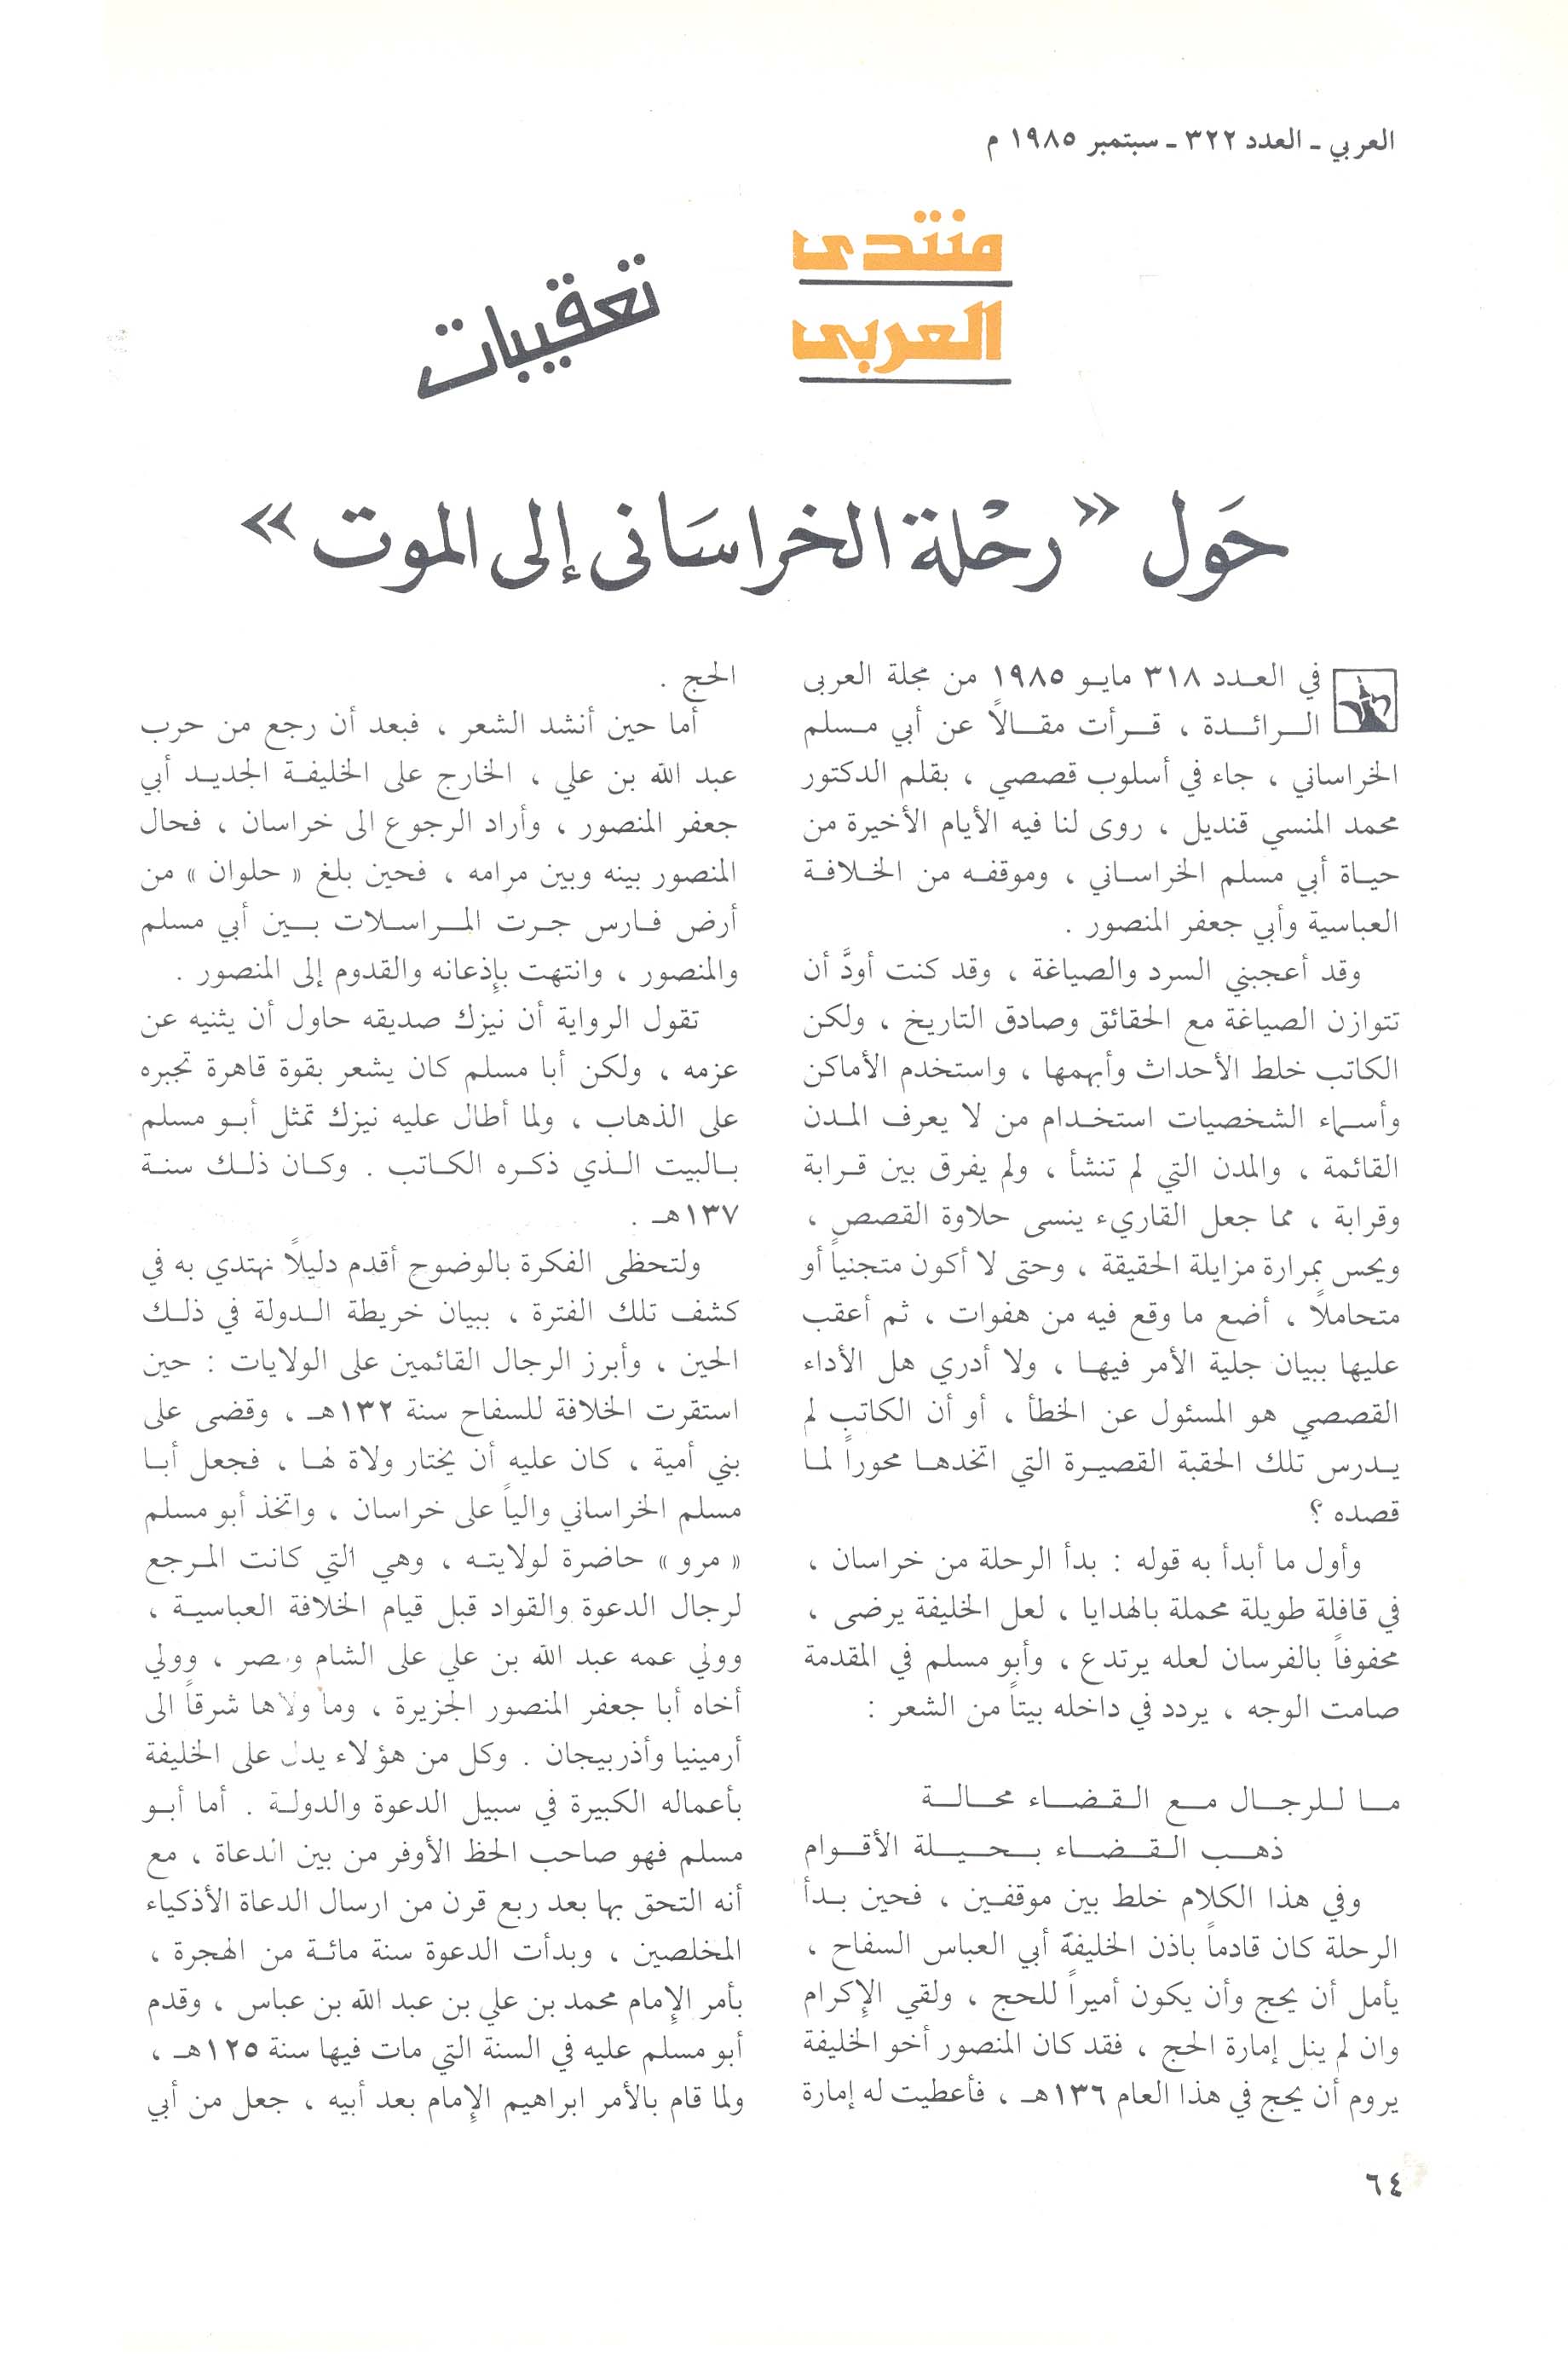 العربي ـ العدد ٣٢٢ ـ سبتمبر ١٩٨٥ م
منتدى
العربى
تعقيبات
حَول «رحْلة الخراسَانى إلى الموت»
في العـدد ٣١٨ مايـو ١٩٨٥ من مجلة العربى
الـرائـدة ، قـرأت مقـالاً عن أبي مـسلم
الخراساني ، جاء في أسلوب قصصي ، بقلم الدكتور
محمد المنسي قنديل ، روى لنا فيه الأيام الأخيرة من
حيـاة أبي مسلم الخراسـاني ، وموقفـه من الخـلافـة
العباسية وأبي جعفر المنصور .
وقد أعجبني السرد والصياغة ، وقد كنت أودَّ أن
تتوازن الصياغة مع الحقائق وصادق التاريخ ، ولكن
الكاتب خلط الأحداث وأبهمها ، واستخدم الأماكن
وأسـماء الشخصيات استخـدام من لا يعرف المـدن
القائمة ، والمدن التي لم تنشأ ، ولم يفرق بين قـرابة
وقرابة ، مما جعل القاريء ينسى حلاوة القصص ،
ويحس بمرارة مزايلة الحقيقة ، وحتى لا أكون متجنياً أو
متحاملاً ، أضع ما وقع فيه من هفوات ، ثم أعقب
عليها ببيان جلية الأمر فيهـا ، ولا أدري هل الأداء
القصصي هو المسئول عن الخطأ ، أو أن الكاتب لم
يـدرس تلك الحقبة القصيـرة التي اتخدهـا محوراً لمـا
قصده ؟
وأول ما أبدأ به قوله : بدأ الرحلة من خراسان ،
في قافلة طويلة محملة بالهدايا ، لعل الخليفة يرضى ،
محفوفاً بالفرسان لعله يرتدع ، وأبو مسلم في المقدمة
صامت الوجه ، يردد في داخله بيتاً من الشعر :
مـا لـلرجـال مـع الـقـضـاء محـالـة
ذهـب الـقـضـاء بـحـيـلة الأقـوام
وفي هذا الكلام خلط بين موقفـين ، فحين بـدأ
الرحلة كان قادماً باذن الخليفة أبي العباس السفاح ،
يأمل أن يحج وأن يكون أميراً للحج ، ولقي الإكرام
وان لم ينل إمارة الحج ، فقد كان المنصور أخو الخليفة
يروم أن يحج في هذا العام ١٣٦هـ ، فأعطيت له إمارة
الحج .
أما حين أنشد الشعر ، فبعد أن رجع من حرب
عبد الله بن علي ، الخارج على الخليفـة الجديـد أبي
جعفر المنصور ، وأراد الرجوع الى خراسان ، فحال
المنصور بينه وبين مرامه ، فحين بلغ « حلوان » من
أرض فـارس جـرت المـراسـلات بـين أبي مسلم
والمنصور ، وانتهت بإذعانه والقدوم إلى المنصور .
تقول الرواية أن نيزك صديقه حاول أن يثنيه عن
عزمه ، ولكن أبا مسلم كان يشعر بقوة قاهرة تجبره
على الذهاب ، ولما أطال عليه نيزك تمثل أبـو مسلم
بـالبيت الـذي ذكـره الكـاتب . وكـان ذلـك سنـة
١٣٧هـ .
ولتحظى الفكرة بالوضوح أقدم دليلاً نهتدي به في
كشف تلك الفترة ، ببيان خريطة الـدولة في ذلـك
الحين ، وأبرز الرجال القائمين على الولايات : حين
استقرت الخلافة للسفاح سنة ١٣٢هـ ، وقضى على
بني أمية ، كان عليه أن يختار ولاة لهـا ، فجعل أبـا
مسلم الخراساني والياً على خراسان ، واتخذ أبو مسلم
« مرو » حاضرة لولايتـه ، وهي التي كانت المـرجع
لرجال الدعوة والقواد قبل قيام الخلافة العباسيـة ،
وولي عمه عبد الله بن علي على الشام ومصر ، وولي
أخاه أبا جعفر المنصور الجزيرة ، وما ولاها شرقاً الى
أرمينيا وأذربيجان . وكل من هؤلاء يدل على الخليفة
بأعماله الكبيرة في سبيل الدعوة والدولـة . أما أبـو
مسلم فهو صاحب الحظ الأوفر من بين الدعاة ، مع
أنه التحق بها بعد ربع قرن من ارسال الدعاة الأذكياء
المخلصين ، وبدأت الدعوة سنة مائـة من الهجرة ،
بأمر الإمام محمد بن علي بن عبد الله بن عباس ، وقدم
أبو مسلم عليه في السنة التي مات فيها سنة ١٢٥هـ ،
ولما قام بالأمر ابراهيم الإمام بعد أبيه ، جعل من أبي
٦٤